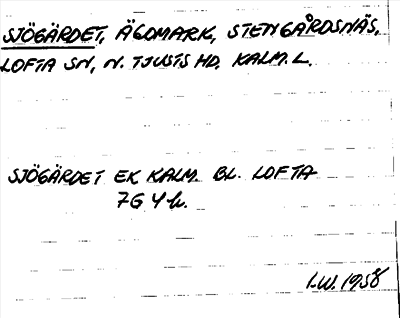 SJÖGÄRDET, ÄGOMARK, STENGÅRDSNÄS,
LOFTA SN, N. TJUSTS HD. KALM. L.
SJÖGÄRDET EK KALM. BL. LOFTA
7G 4h.
I.W. 1958